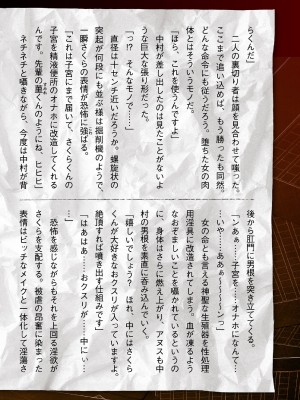 らくんだ」
　二人の裏切り者は顔を見合わせて嗤った。
ここまで追い込めば、もう勝ったも同然。
どんな命令にも従うだろう。堕ちた女の肉
体とはそういうモノだ。
「ほら、これを使うんですよ」
　中村が差し出したのは見たことがないよ
うな巨大な張り形だった。
「っ!?　そんなモノで……」
　直径は十センチ近いだろうか。螺旋状の
突起が何段にも並ぶ様は掘削機のようで、
一瞬さくらの表情が恐怖に強ばる。
「これは子宮にまで届いて、さくらくんの
子宮を精液便所のオナホに改造してくれる
んです。先輩の凜くんのようにね、ヒヒヒ」
　ネチネチと囁きながら、今度は中村が背
後から肛門に男根を突き立ててくる。
「ンあぁっ……子宮を……オナホになんて…
…いや……あぁ～～～～ンっ」
　女の命とも言える神聖な生殖器を性処理
用淫具に改造されてしまう。血が凍るよう
なおぞましいことを囁かれているというの
に、身体はさらに燃え上がり、アヌスも中
村の男根を素直に呑み込んでいく。
「嬉しいでしょう？　ほれ、中にはさくら
くんが大好きなおクスリが入っていますよ。
絶頂すれば噴き出す仕組みです」
「はぁはぁ……おクスリが……中にぃ…
…」
　恐怖を感じながらもそれを上回る淫欲が
さくらを支配する。被虐の昂奮に染まった
表情はビッチなメイクと一体化して淫蕩さ